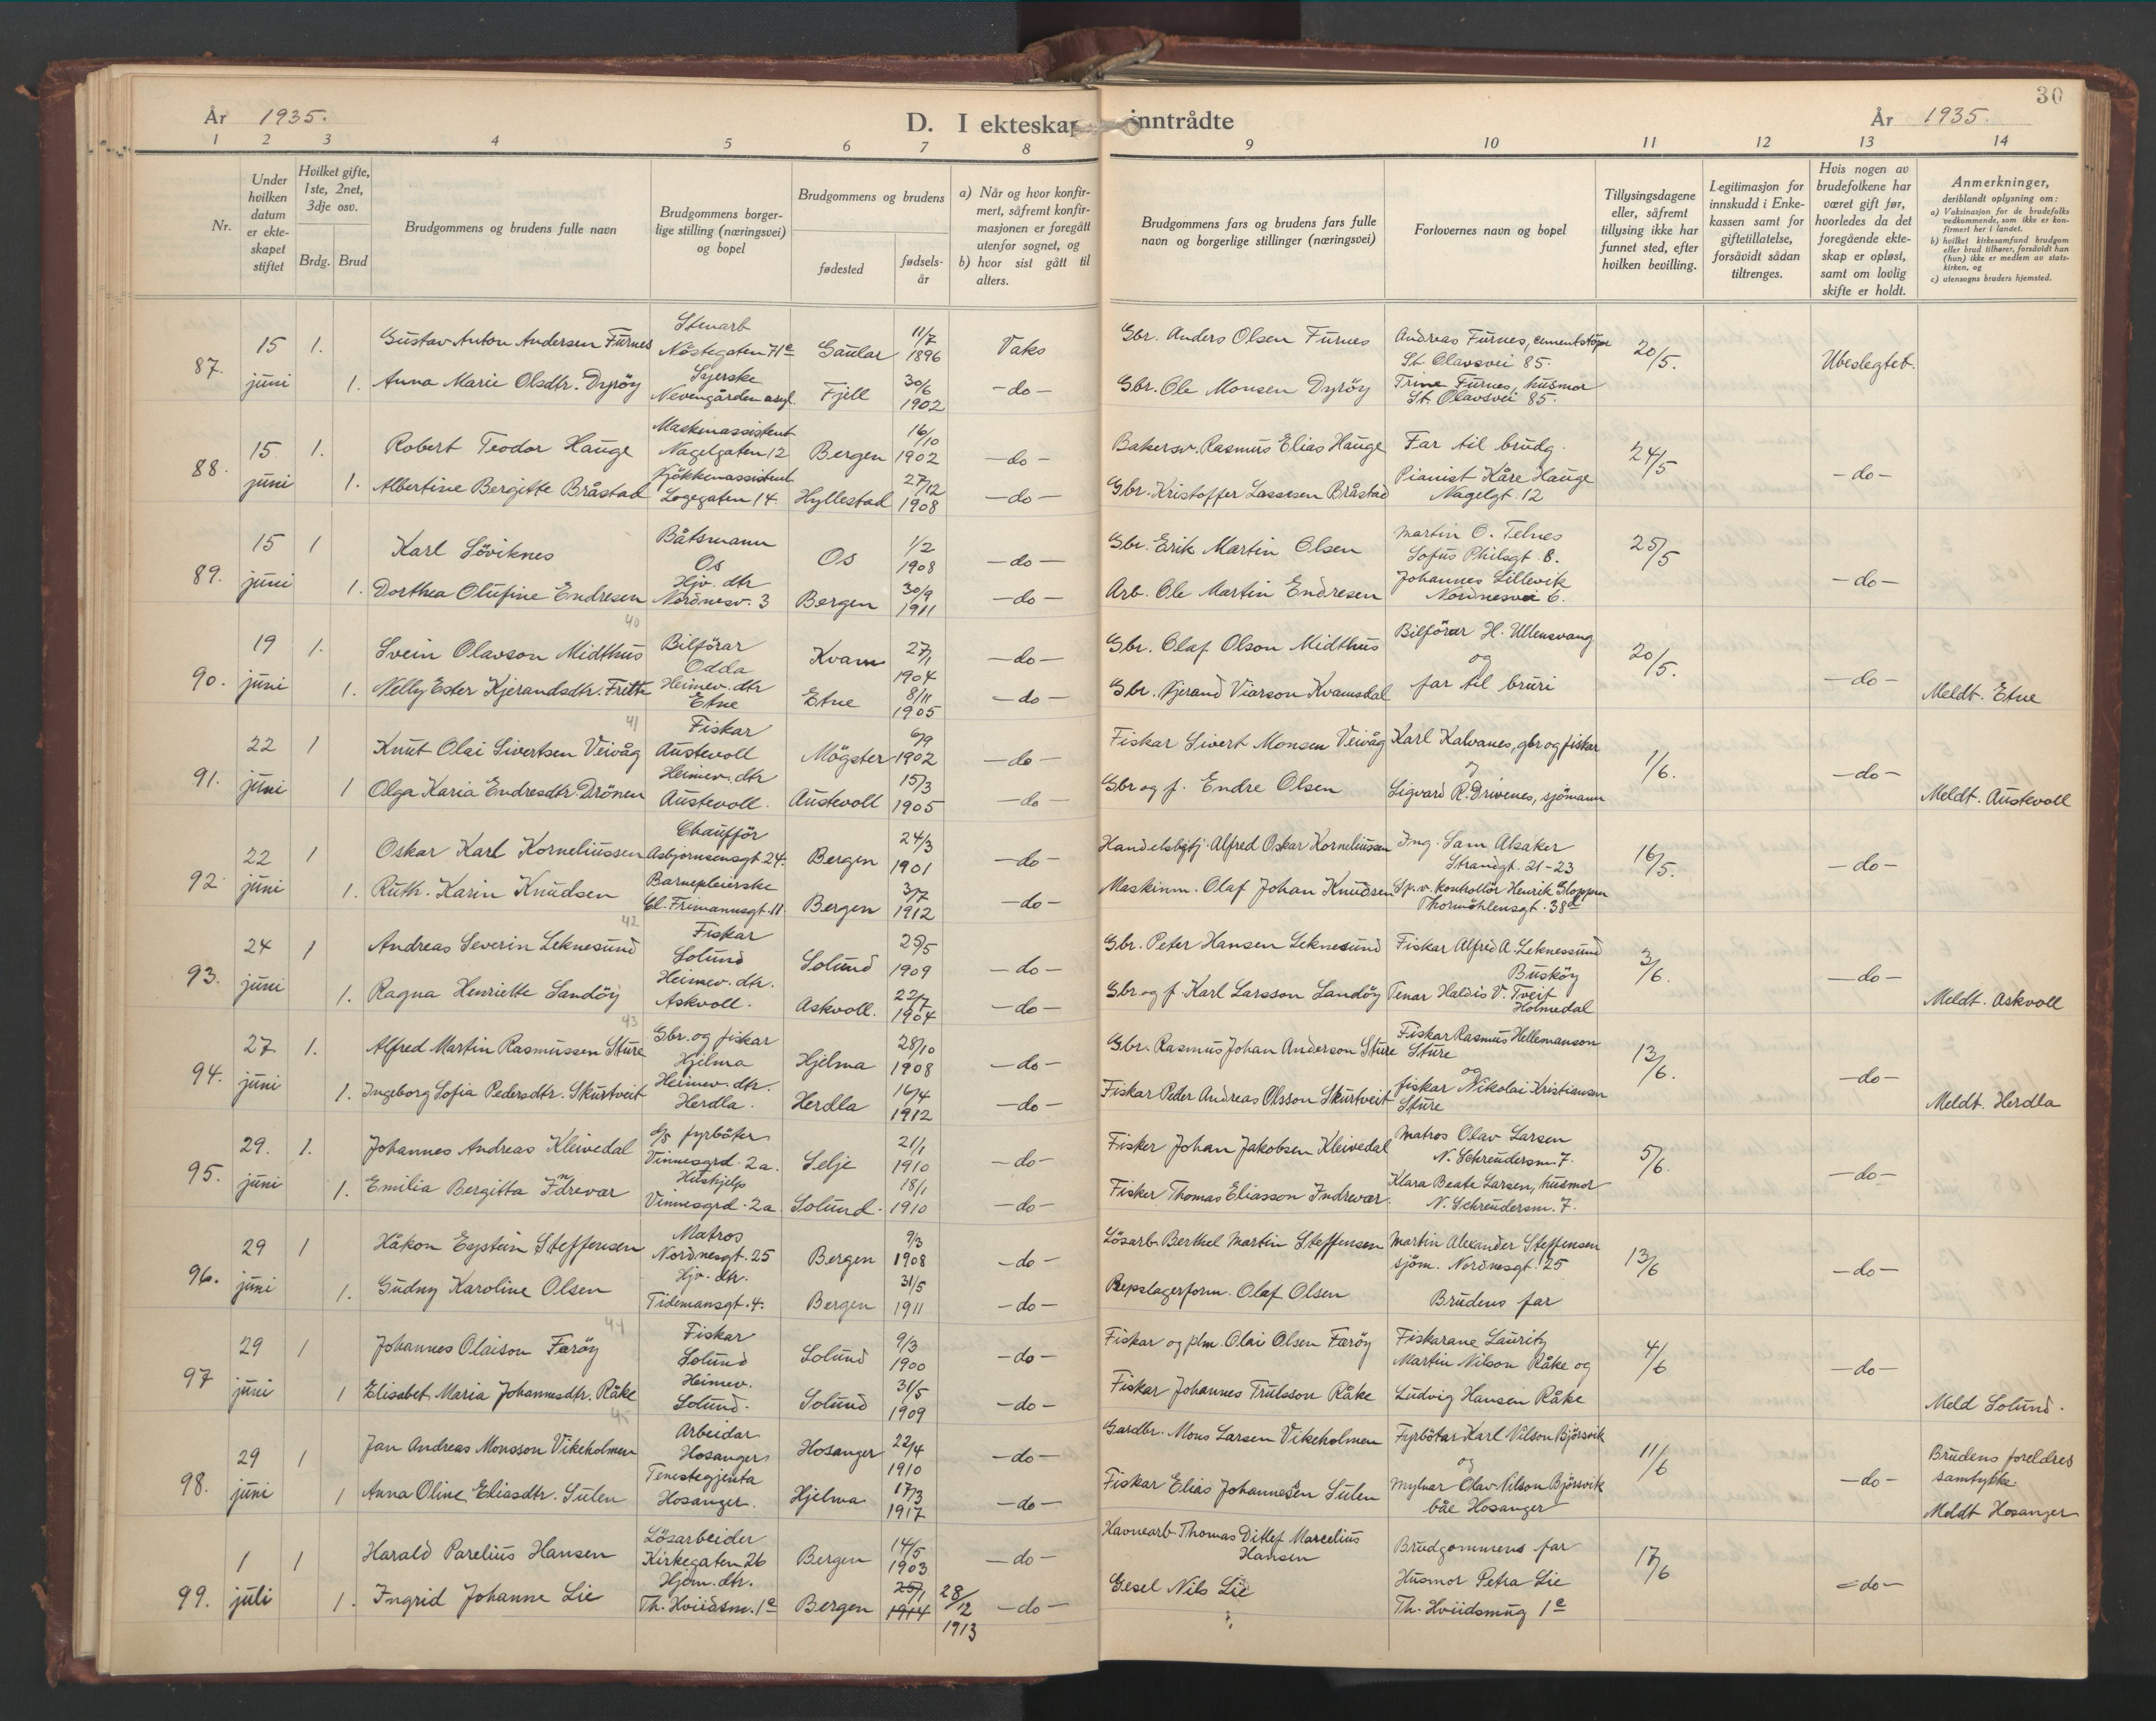 År 1935.
D. I ekteskap inntrådte
År 1935.
30
1 2 3 4 5 6 7 8 9 10 11 12 13 14
Nr.
Under hvilken datum er ekteskapet stiftet
Hvilket gifte, 1ste, 2net, 3dje osv.
Brdg. Brud
Brudgommens og brudens fulle navn
Brudgommens borgerlige stilling (næringsvei) og bopel
Brudgommens og brudens
fødested
fødselsår
a) Når og hvor konfirmert, såfremt konfirmasjonen er foregått utenfor sognet, og
b) hvor sist gått til alters.
Brudgommens fars og brudens fars fulle navn og borgerlige stillinger (næringsvei)
Forlovernes navn og bopel
Tillysingsdagene eller, såfremt tillysing ikke har funnet sted, efter hvilken bevilling.
Legitimasjon for innskudd i Enkekassen samt for giftetillatelse, forsåvidt sådan tiltrenges.
Hvis nogen av brudefolkene har været gift før, hvorledes da det foregående ekteskap er opløst, samt om lovlig skifte er holdt.
Anmerkninger, deriblandt oplysning om:
a) Vaksinasjon for de brudefolks vedkommende, som ikke er konfirmert her i landet.
b) hvilket kirkesamfund brudgom eller brud tilhører, forsåvidt han (hun) ikke er medlem av statskirken, og
c) utensogns bruders hjemsted.
87. 15 juni 1. Gustav Anton Andersen Furnes Stenarb Nøstegaten 71c Gaular 11/7 1896 Vaks Gbr. Anders Olsen Furnes Andreas Furnes, cementstøper St. Olavsvei 85. 20/5. Ubeslegtet.
1. Anna Marie Olsdtr. Dyrøy Syerske Nevengården asyl. Fjell 30/6 1902 -do- Gbr. Ole Monsen Dyrøy Trine Furnes, husmor St. Olavsvei 85.
88. 15. juni 1. Robert Teodor Hauge Maskinassistent Nagelgaten 12 Bergen 16/10 1902 -do- Bakersv. Rasmus Elias Hauge Far til brudg. 24/5 -do-
1. Albertine Bergitte Bråstad Kjøkkenassistent Logegaten 14. Hyllestad 27/12 1908 -do- Gbr. Kristoffer Lassesen Bråstad Pianist Kåre Hauge Nagelgt. 12
89. 15 juni 1 Karl Søviknes Båtsmann Os Os 1/2 1908 -do- Gbr. Erik Martin Olsen Martin O. Telnes Sofus Philsgt. 8. 25/5 -do-
1. Dorthea Olufine Endresen Hjv. dtr Nordnesv. 3 Bergen 30/9 1911 -do- Arb. Ole Martin Endresen Johannes Lillevik Nordnesvei 6.
40
90. 19 juni 1. Svein Olavson Midthus Bilførar Odda Kvam 27/1 1904 -do- Gbr. Olaf Olson Midthus Bilførar H. Ullensvang og 20/5. -do-
1. Nelly Ester Kjerandsdtr. Fritte Heimev. dtr Etne Etne 8/11 1905 -do- Gbr. Kjerand Viarson Kvamsdal far til bruri Meldt. Etne
41
91. 22 juni 1 Knut Olai Sivertsen Veivåg Fiskar Austevoll Møgster 6/9 1902 -do- Fiskar Sivert Monsen Veivåg Karl Kalvanes, gbr og fiskar og 1/6. -do-
1 Olga Karia Endresdtr. Drønen Heimev. dtr Austevoll. Austevoll 15/3 1905 -do- Gbr og f. Endre Olsen Sigvard R. Drivenes, sjømann Meldt. Austevoll
92 22 juni 1 Oskar Karl Korneliussen Chauffør Asbjørnsensgt. 24. Bergen 24/3 1901 -do- Handelsbetj. Alfred Oskar Korneliussen Ing. Sam Alsaker Strandgt. 21-23 16/5. -do-
1. Ruth Karin Knudsen Barnepleierske Cl. Frimannsgt. 11. Bergen 3/7 1912 -do- Maskinm. Olaf Johan Knudsen Sp.v. kontrollør Henrik Gloppen Thormøhlensgt. 38d
42
93. 24 juni 1 Andreas Severin Leknesund Fiskar Solund Solund 25/5 1909 -do- Gbr. Peter Hansen Leknesund Fiskar Alfred A. Leknessund Buskøy 3/6. -do-
1. Ragna Henriette Sandøy Heimev. dtr. Askvoll. Askvoll. 22/7 1904 -do- Gbr. og f. Karl Larsson Sandøy Tenar Haldis V. Tveit Holmedal Meldt. Askvoll
43
94. 27 juni 1. Alfred Martin Rasmussen Sture Gbr. og fiskar Hjelma Hjelma 28/10 1908 -do- Gbr. Rasmus Johan Anderson Sture Fiskar Rasmus Hellemanson Sture og 13/6. -do-
1. Ingeborg Sofia Pedersdtr. Skurtveit Heimev. dtr. Herdla. Herdla 16/4 1912 -do- Fiskar Peder Andreas Olsson Skurtveit fiskar Nikolai Kristiansen Sture Meldt. Herdla
95. 29. juni 1. Johannes Andreas Kleivedal fyrbøter Vinnesgrd. 2a. Selje 21/1 1910 -do- Fisker Johan Jakobsen Kleivedal Matros Olav Larsen N. Schreudersm. 7. 5/6. -do-
1. Emilia Bergitta Indrevær Hushjelp Vinnesgrd. 2a Solund. 18/1 1910 -do- Fisker Thomas Eliasson Indrevær. Klara Beate Larsen, husmor N. Schreudersm. 7.
96. 29 juni 1 Håkon Eystein Steffensen Matros Nordnesgt. 25 Bergen 9/3 1908 -do- Løsarb. Berthel Martin Steffensen Martin Alexander Steffensen sjøm. Nordnesgt. 25 13/6 -do-
1. Gudny Karoline Olsen Hjv. dtr. Tidemansgt. 4. Bergen 31/5 1911 -do- Repslagerform. Olaf Olsen Brudens far
44
97 29 juni 1 Johannes Olaison Færøy Fiskar Solund Solund 9/3 1900 -do- Fiskar og plm. Olai Olsen Færøy Fiskarane Lauritz Martin Nilson Råke og 4/6 -do-
1 Elisabet Maria Johannesdtr. Råke Heimev. Solund. Solund 31/5 1909 -do- Fiskar Johannes Trulsson Råke Ludvig Hansen Råke Meld Solund.
45
98. 29 juni 1 Jan Andreas Monsson Vikeholmen Arbeidar Hosanger Hosanger 22/4 1910 -do- Gardbr. Mons Larsen Vikeholmen Fyrbøtar Karl Nilson Bjørsvik og 11/6 -do- Brudens foreldres samtykke.
1 Anna Oline Eliasdtr. Sulen Tenestegjenta Hosanger. Hjelma 17/3 1917 -do- Fiskar Elias Johannesen Sulen Mylnar Olav Nilson Bjørsvik båe Hosanger Meldt Hosanger
99. 1 juli 1 Harald Parelius Hansen Løsarbeider Kirkegaten 26 Bergen 14/5 1903 -do- Havnearb. Thomas Ditlef Marcelius Hansen Brudgommens far 17/6 -do-
1. Ingrid Johanne Lie Hjem. dtr. Th. Hviidsm. 1c Bergen 25/1 1914 28/12 1913 -do- Gesel Nils Lie Husmor Petra Lie Th. Hviidsmug 1c